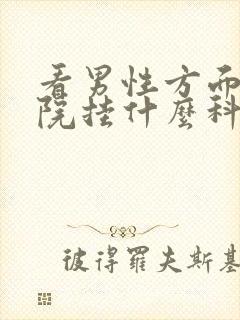 看男性方面
院挂什麽科
彼得羅夫斯基